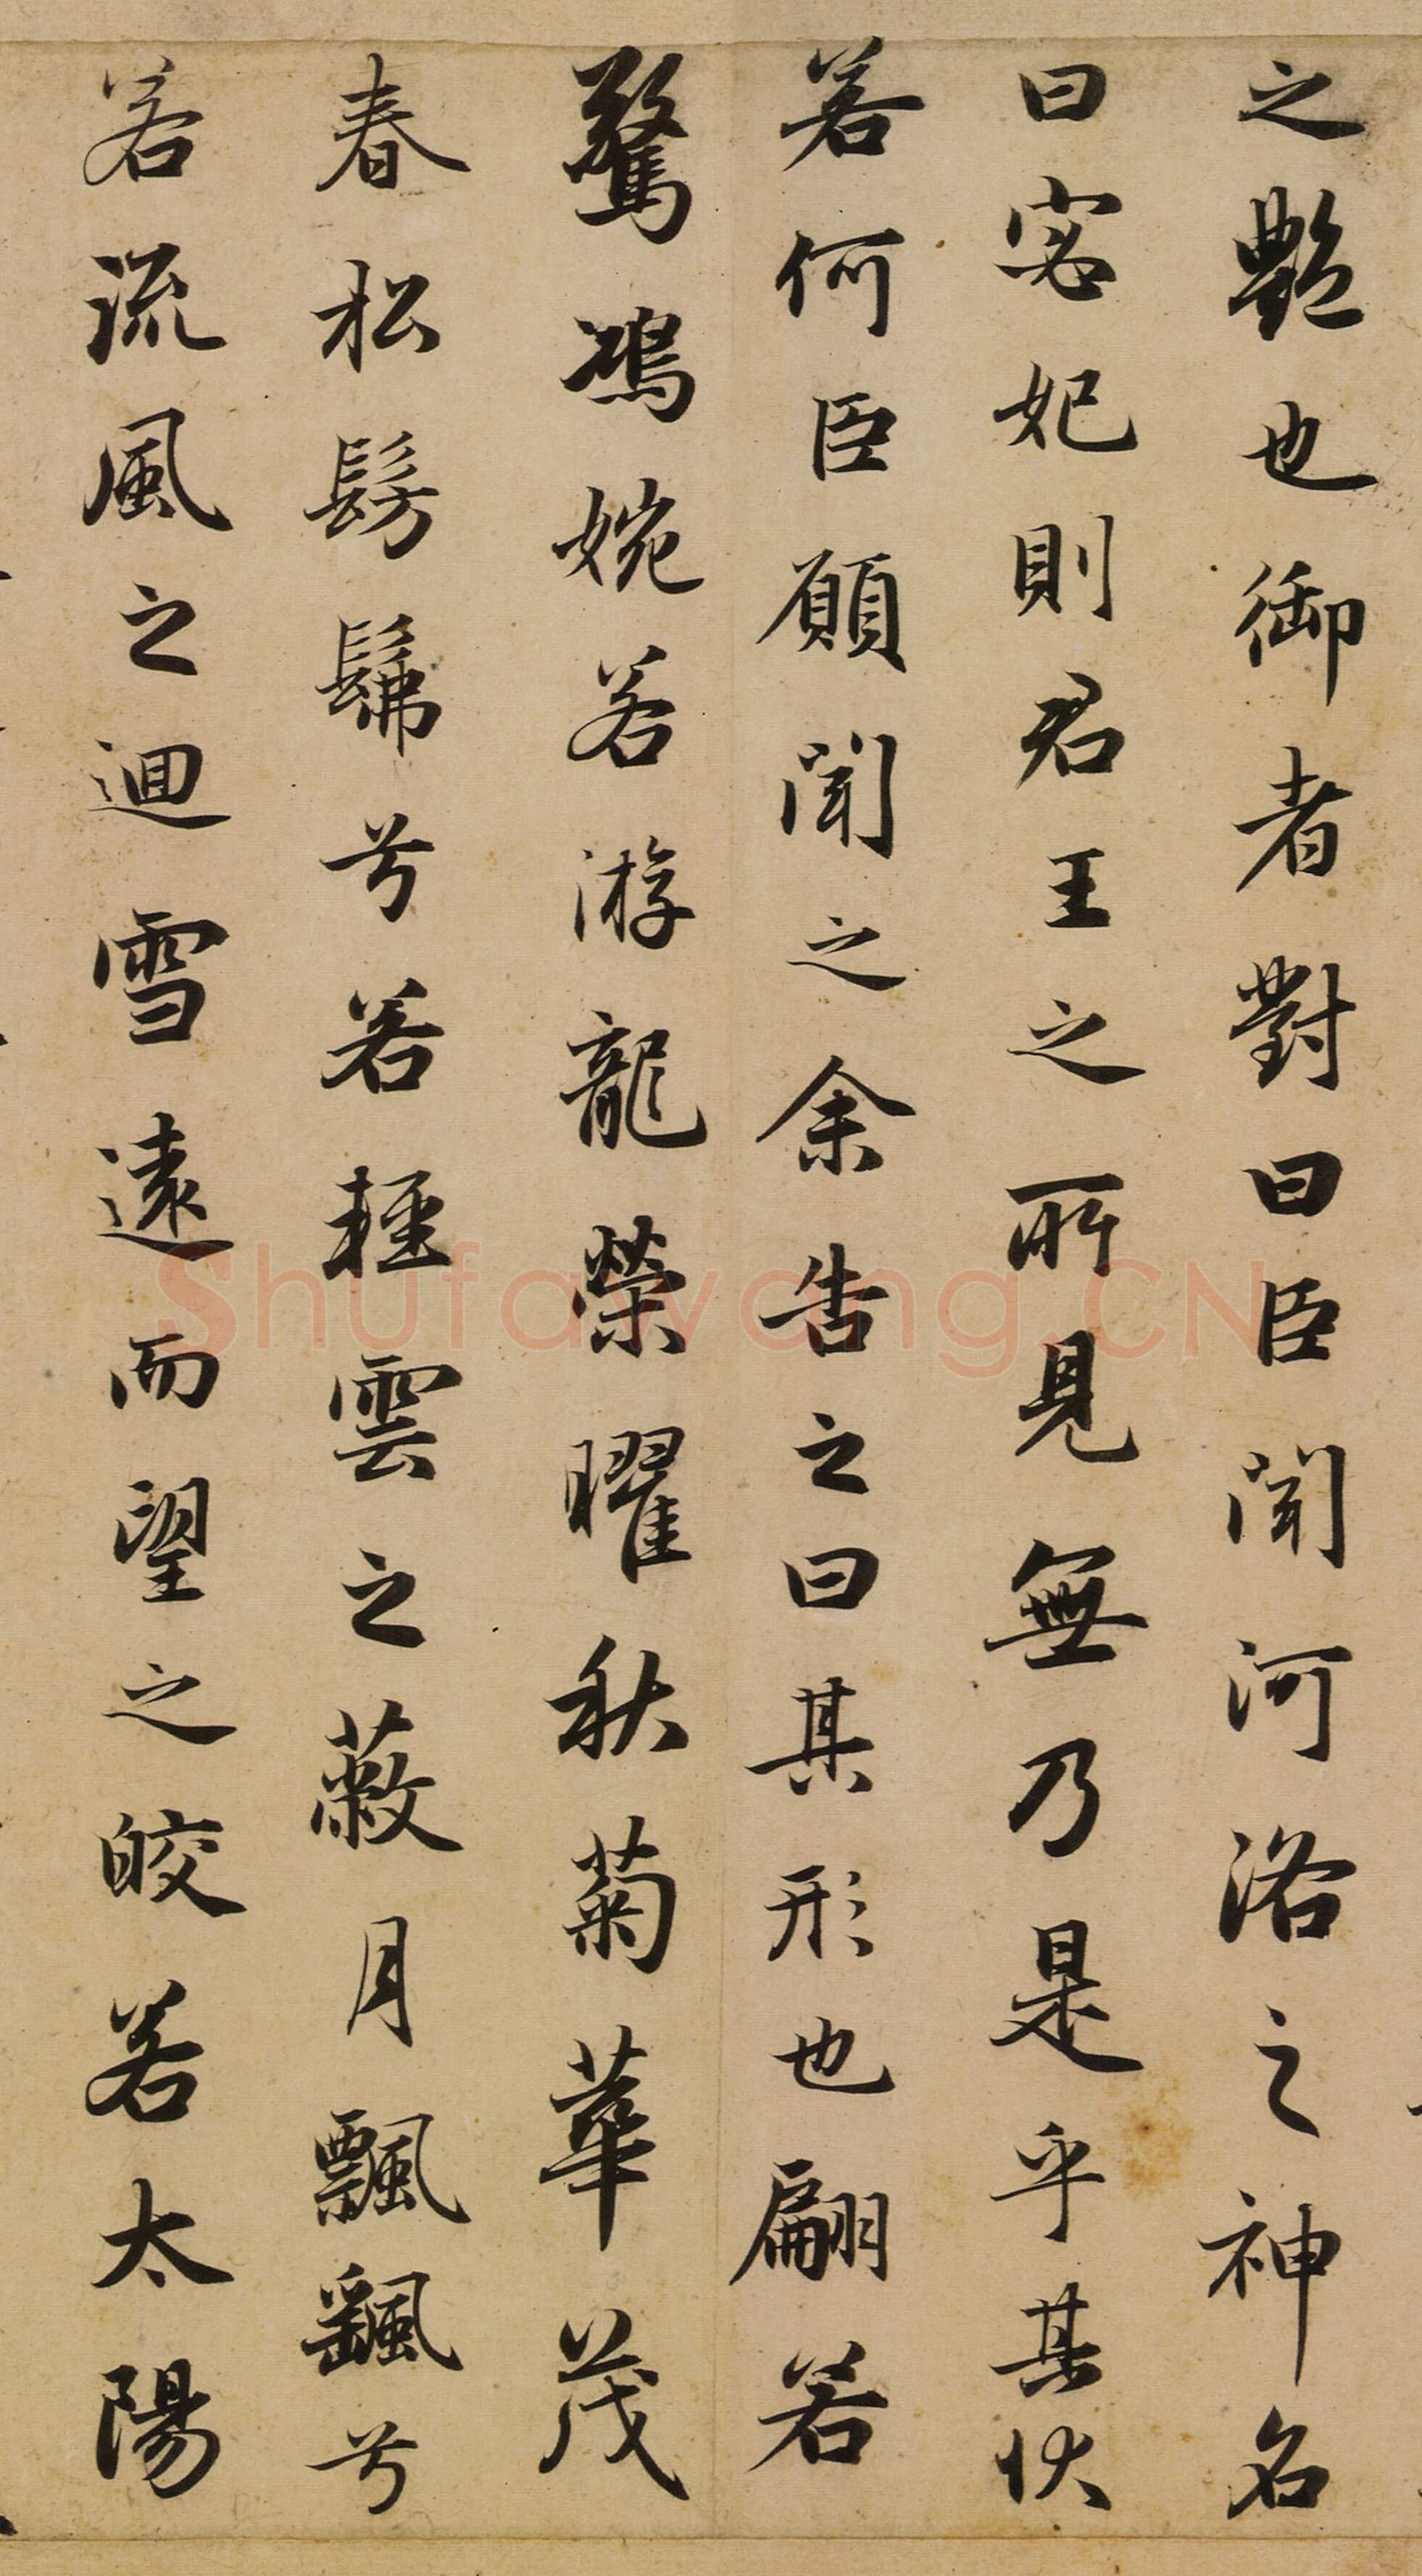 之艷也御者對曰臣聞河洛之神名
曰宓妃則君王之所見無乃是乎其狀
若何臣願聞之余告之曰其形也翩若
驚鴻婉若游龍榮曜秋菊華茂
春松髣髴兮若輕雲之蔽月飄颻兮
若流風之迴雪遠而望之皎若太陽
Shufawang.CN